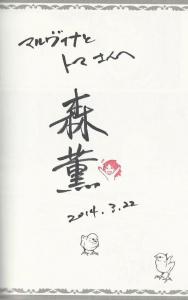 マルヴィナと
トマさんへ
森
薫
2014.3.22